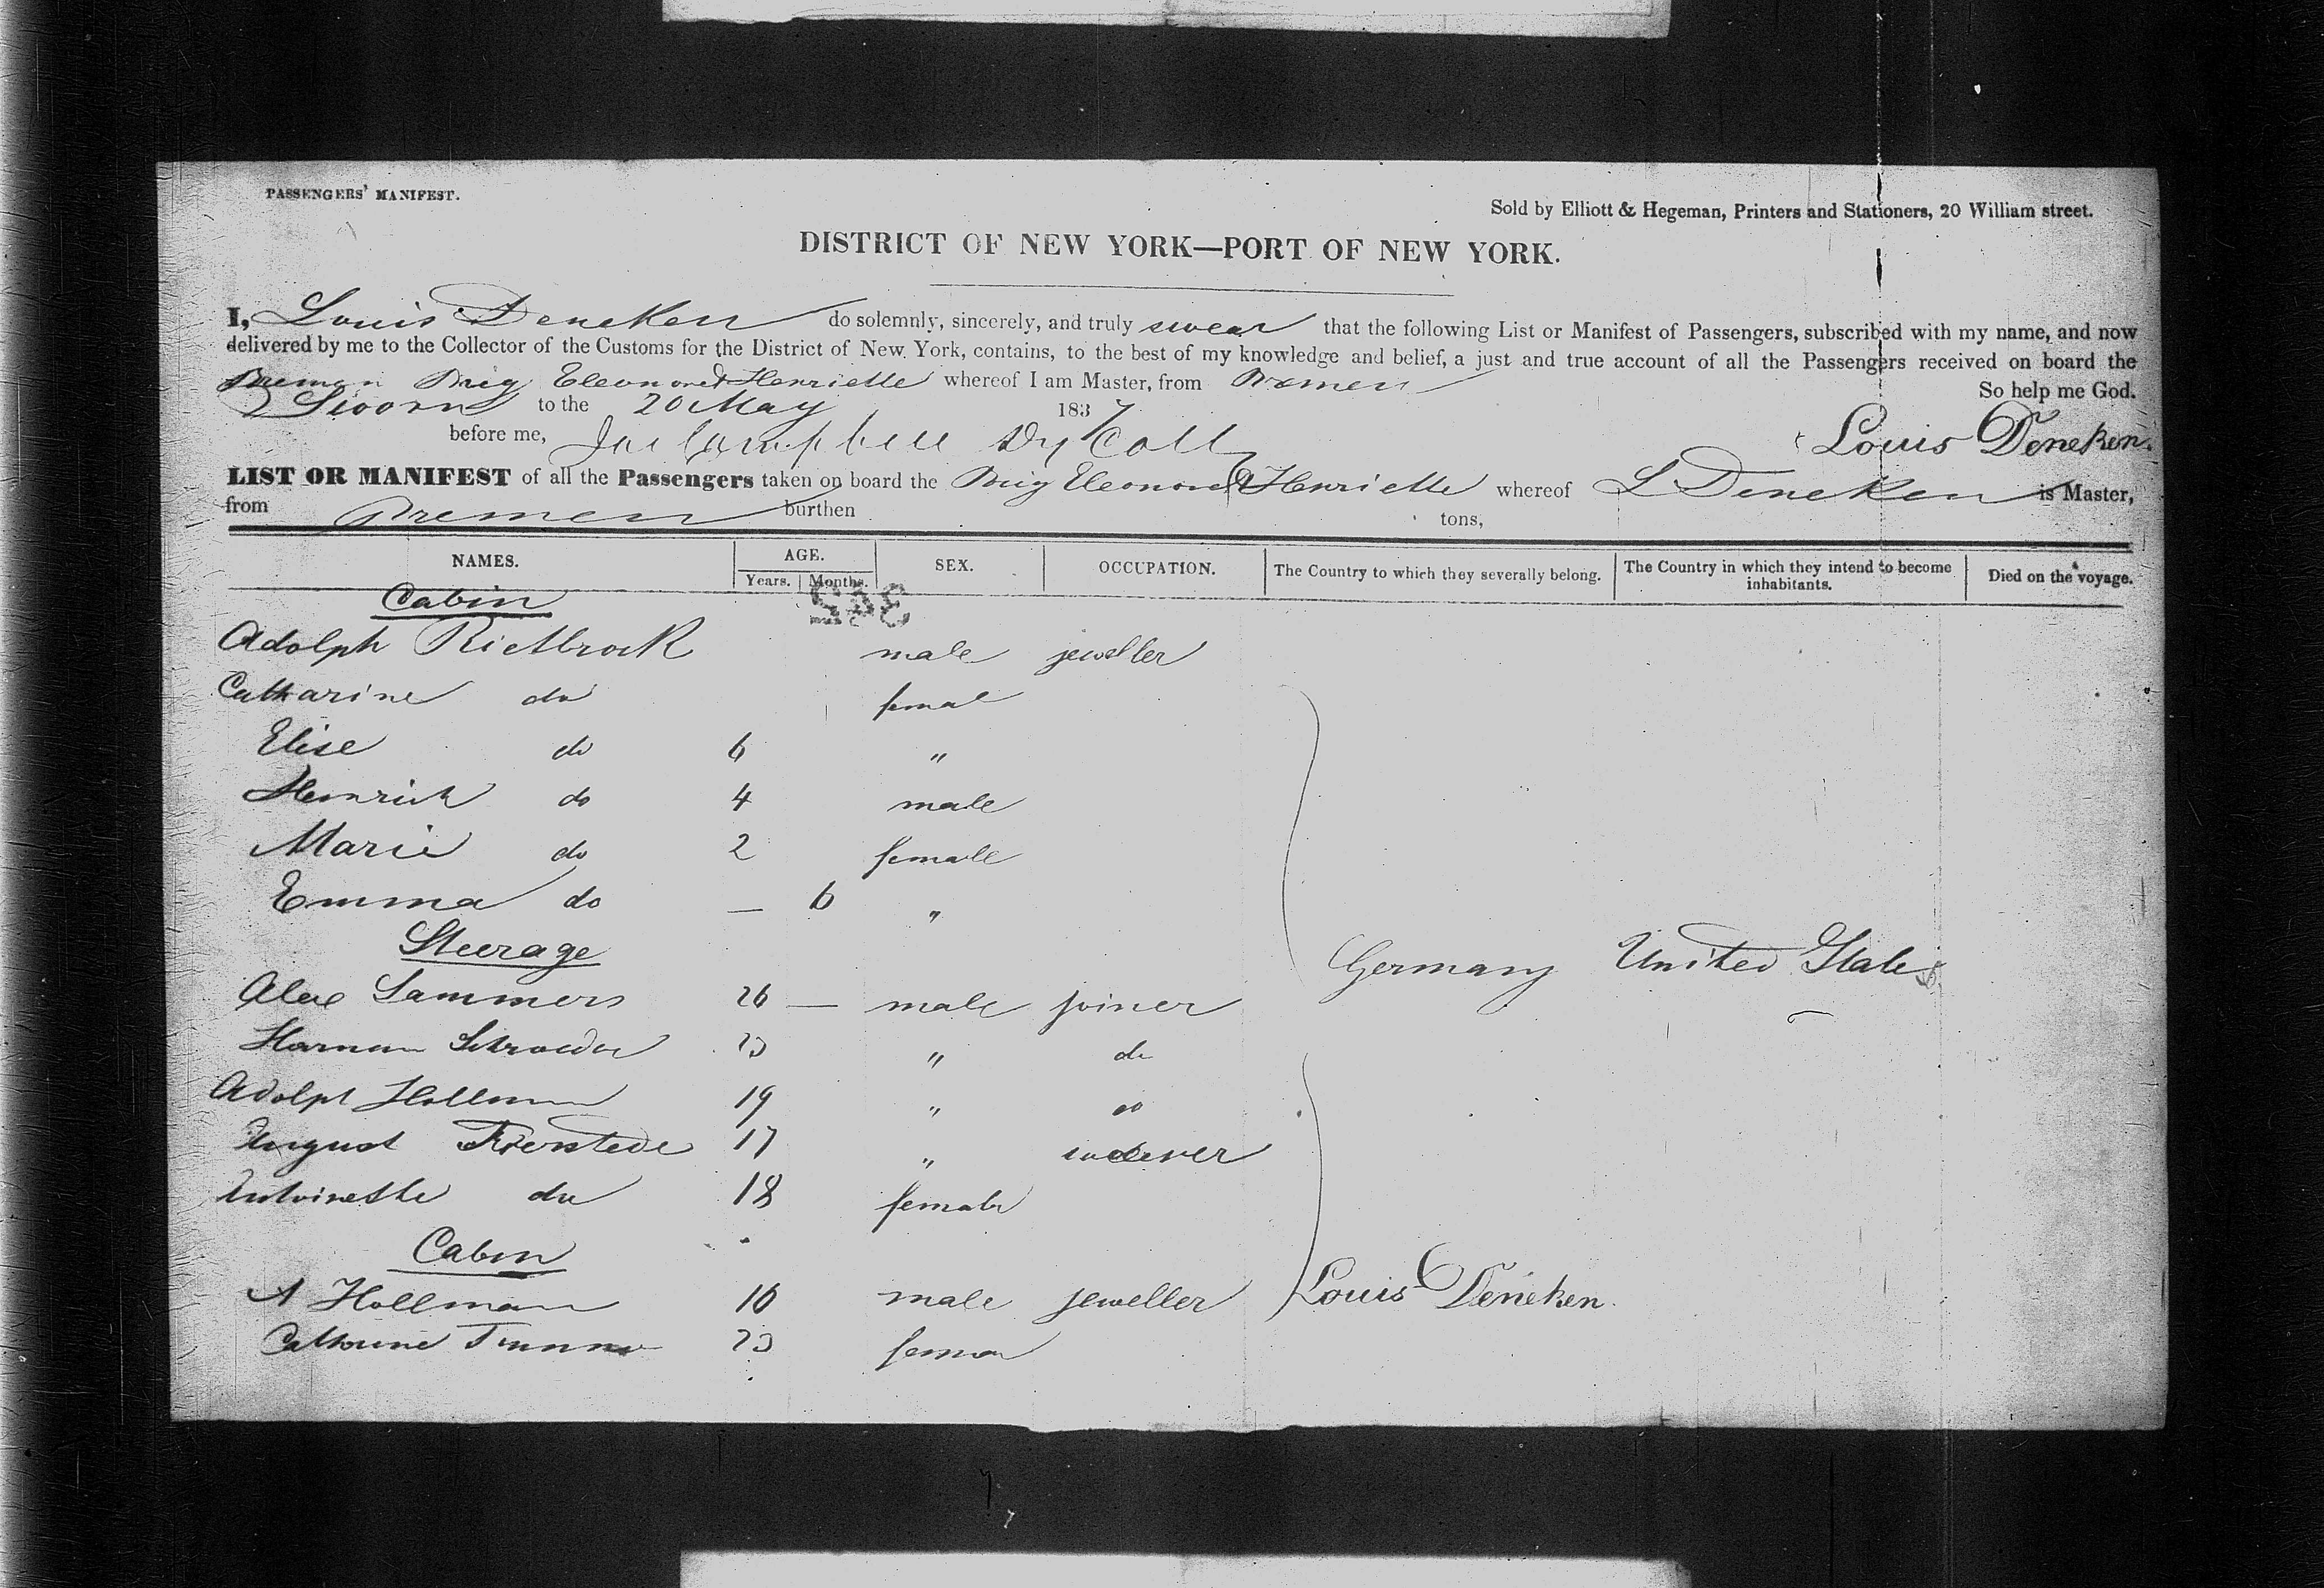 PASSENGERS' MANIFEST.
Sold by Elliott & Hegeman, Printers and Stationers, 20 William street.
DISTRICT OF NEW YORK—PORT OF NEW YORK.
I, Louis Deneken do solemnly, sincerely, and truly swear that the following List or Manifest of Passengers, subscribed with my name, and now
delivered by me to the Collector of the Customs for the District of New York, contains, to the best of my knowledge and belief, a just and true account of all the Passengers received on board the
Bremen Brig Eleonore & Henriette whereof I am Master, from Bremen So help me God.
Sworn to the 20 May 1837
before me, Campbell Dy Coll Louis Deneken.
LIST OR MANIFEST of all the Passengers taken on board the Brig Eleonore & Henriette whereof L Deneken is Master,
from Bremen burthen tons,
NAMES. AGE. Years. Months. SEX. OCCUPATION. The Country to which they severally belong. The Country in which they intend to become inhabitants. Died on the voyage.
Cabin
Adolph Rietbrock male jeweller
Catharine do femal
Elise do 6 "
Heinrich do 4 male
Marie do 2 female
Emma do — 6 "
Steerage
Germany United States
Alex Sammers 26 — male joiner
Harman Schroeder "do
Adolph Hollman 19 " do
August 17 "
Antoinette do 18 female
Cabin
A Hollman 16 male jeweller Louis Deneken.
Catharine